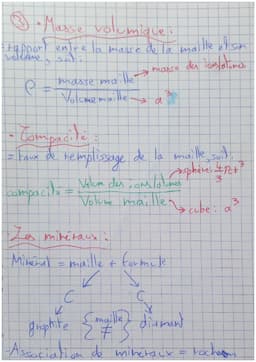 ③ • Masse volumique :
= rapport entre la masse de la maille et son
volume, soit :
ρ = masse maille / Volume maille → masse des
→ a³
• Compacité :
= taux de remplissage de la maille, soit :
→ sphère : 4/3 π r³
compacité = Volum des / Volume maille
→ cube : a³
Les minéraux :
Minéral = maille + formule
C C
graphite { maille ≠ } diamant
- Association de minéraux = roches